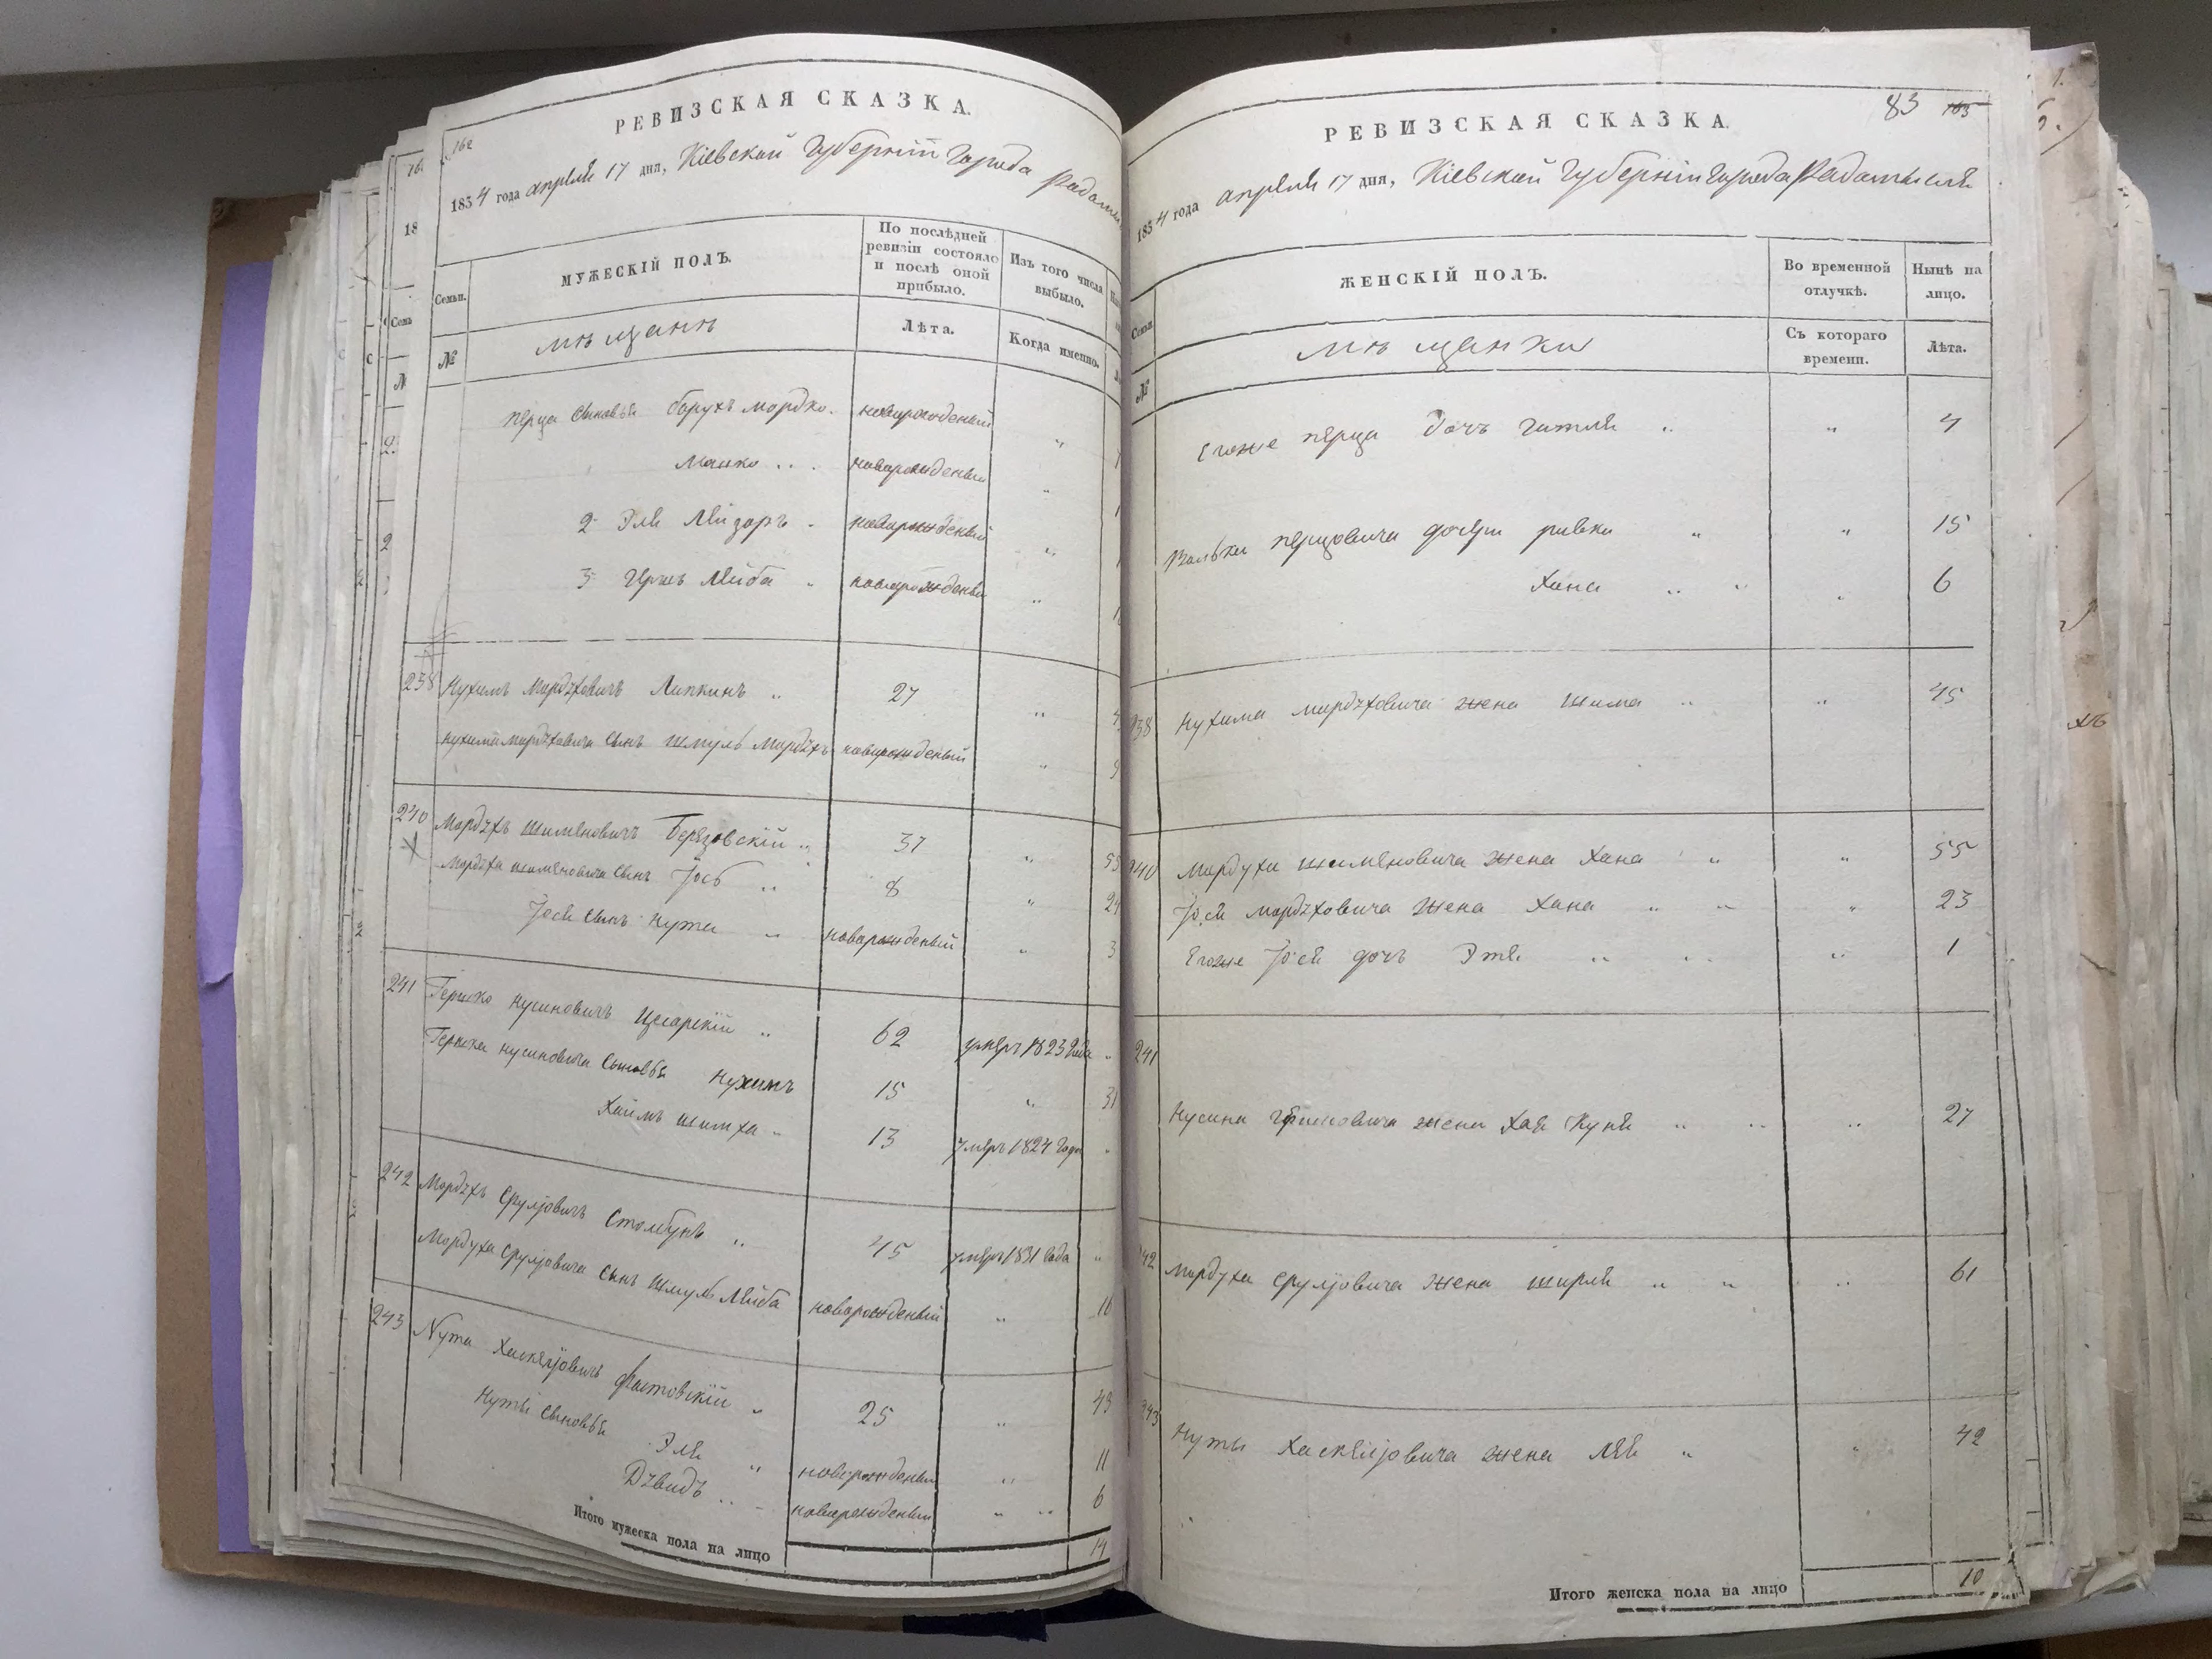 162
РЕВИЗСКАЯ СКАЗКА.
1834 года апреля 17 дня, Кіевской Губерніи Города Радомы
Семьи.
МУЖЕСКІЙ ПОЛЪ.
По послѣдней
ревизіи состояло
и послѣ оной
прибыло.
Изъ того числа
выбыло.
№
мѣщанѣ
Лѣта.
Когда именно.
Перца сыновья Борухъ Мордко. новарожденый
Манко новарожденый
2 Эля Лейзоръ новарожденый
3 Гершъ Лейба новарожденый
238 Нухимъ Мордуховичъ Липкинъ 27
Нухима Мордуховича сынъ Шмуль Мордухъ новарожденый
240 Мордухъ Шимоновичъ Берязовскій 37 55
Мордуха Шимоновича сынъ Іось 8 24
Іося сынъ Нута новарожденый 3
241 Гершко Нусиновичъ Цесарскій 62 умеръ 1823 года
Гершка Нусиновича сыновья Нухимъ 15 31
Хаимъ Шимха 13 умеръ 1824 года
242 Мордухъ Срулјовичъ Столбунъ 45 умеръ 1831 года
Мордуха Срулјовича сынъ Шмуль Лейба новарожденый 16
243 Нута Хаскелјовичъ Фастовскій 25 43
Нуты сыновья Эля новарожденый 11
Дувидъ новарожденый 6
Итого мужеска пола на лицо 14
83 163
РЕВИЗСКАЯ СКАЗКА.
1834 года апреля 17 дня, Кіевской Губерніи Города Радомысля
Семьи.
ЖЕНСКІЙ ПОЛЪ.
Во временной
отлучкѣ.
Нынѣ на
лицо.
№
мѣщанки
Съ котораго
времени.
Лѣта.
Егоже Перца дочъ Гитля 4
Вольки Перцовича дочери Ривка 15
Хана 6
238 Нухима Мордуховича жена Шима 45
240 Мордуха Шимоновича жена Хана 55
Іося Мордуховича жена Хана 23
Егоже Іося дочъ Этя 1
241
Нусина Гершковича жена Хая Куня 27
242 Мордуха Срулјовича жена Ширля 61
243 Нуты Хаскелјовича жена Лея 42
Итого женска пола на лицо 10